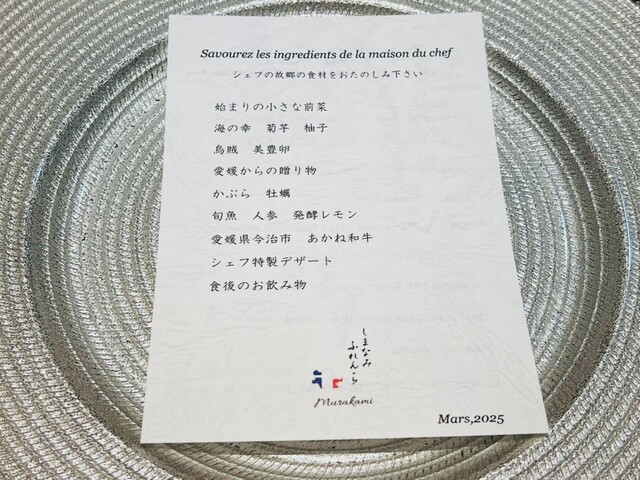 Savourez les ingredients de la maison du chef
シェフの故郷の食材をおたのしみ下さい
始まりの小さな前菜
海の幸　菊芋　柚子
烏賊　美豊卵
愛媛からの贈り物
かぶら　牡蠣
旬魚　人参　発酵レモン
愛媛県今治市　あかね和牛
シェフ特製デザート
食後のお飲み物
しまなみ
ふれんち
Murakami
Mars,2025